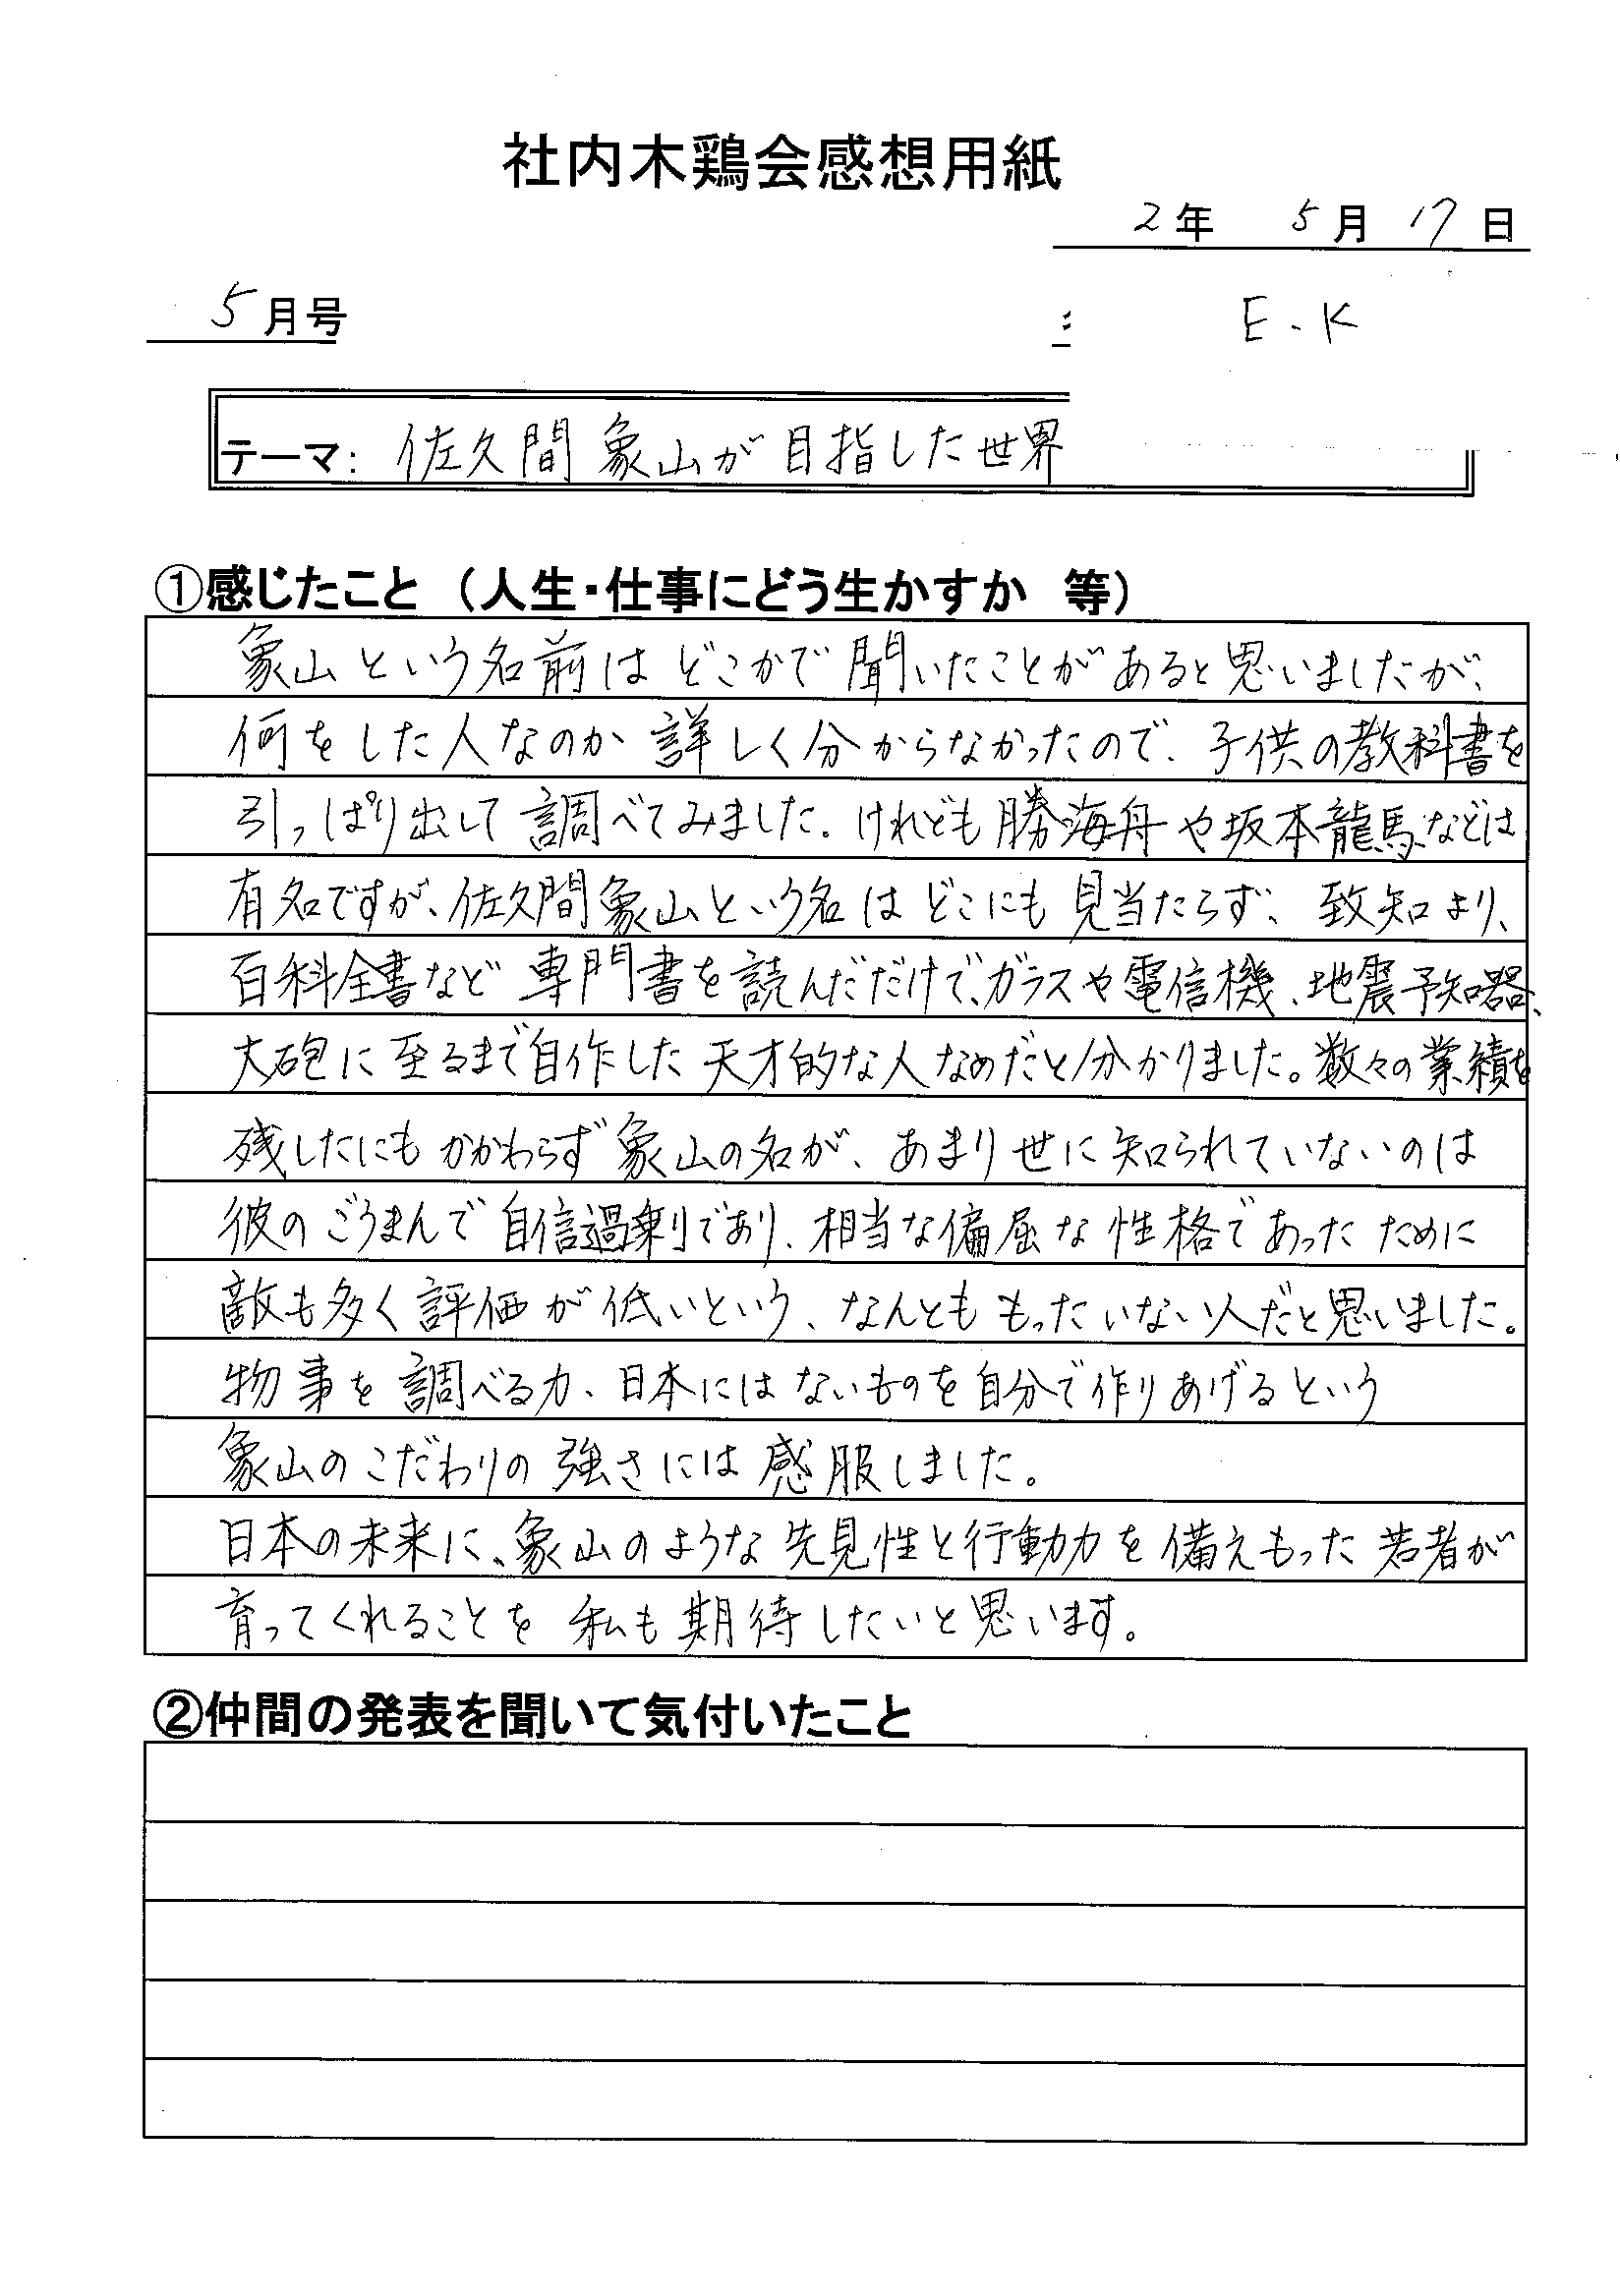 社内木鶏会感想用紙
2年 5月 17日
5月号
E.K
テーマ: 佐久間象山が目指した世界
①感じたこと (人生・仕事にどう生かすか 等)
象山という名前はどこかで聞いたことがあると思いましたが、
何をした人なのか詳しく分からなかったので、子供の教科書を
引っぱり出して調べてみました。けれども勝海舟や坂本龍馬などは
有名ですが、佐久間象山という名はどこにも見当たらず、致知より、
百科全書など専門書を読んだだけで、ガラスや電信機、地震予知器、
大砲に至るまで自作した天才的な人なのだと分かりました。数々の業績を
残したにもかかわらず象山の名が、あまり世に知られていないのは
彼のごうまんで自信過剰であり、相当な偏屈な性格であったために
敵も多く評価が低いという、なんとももったいない人だと思いました。
物事を調べる力、日本にはないものを自分で作りあげるという
象山のこだわりの強さには感服しました。
日本の未来に、象山のような先見性と行動力を備えもった若者が
育ってくれることを私も期待したいと思います。
②仲間の発表を聞いて気付いたこと